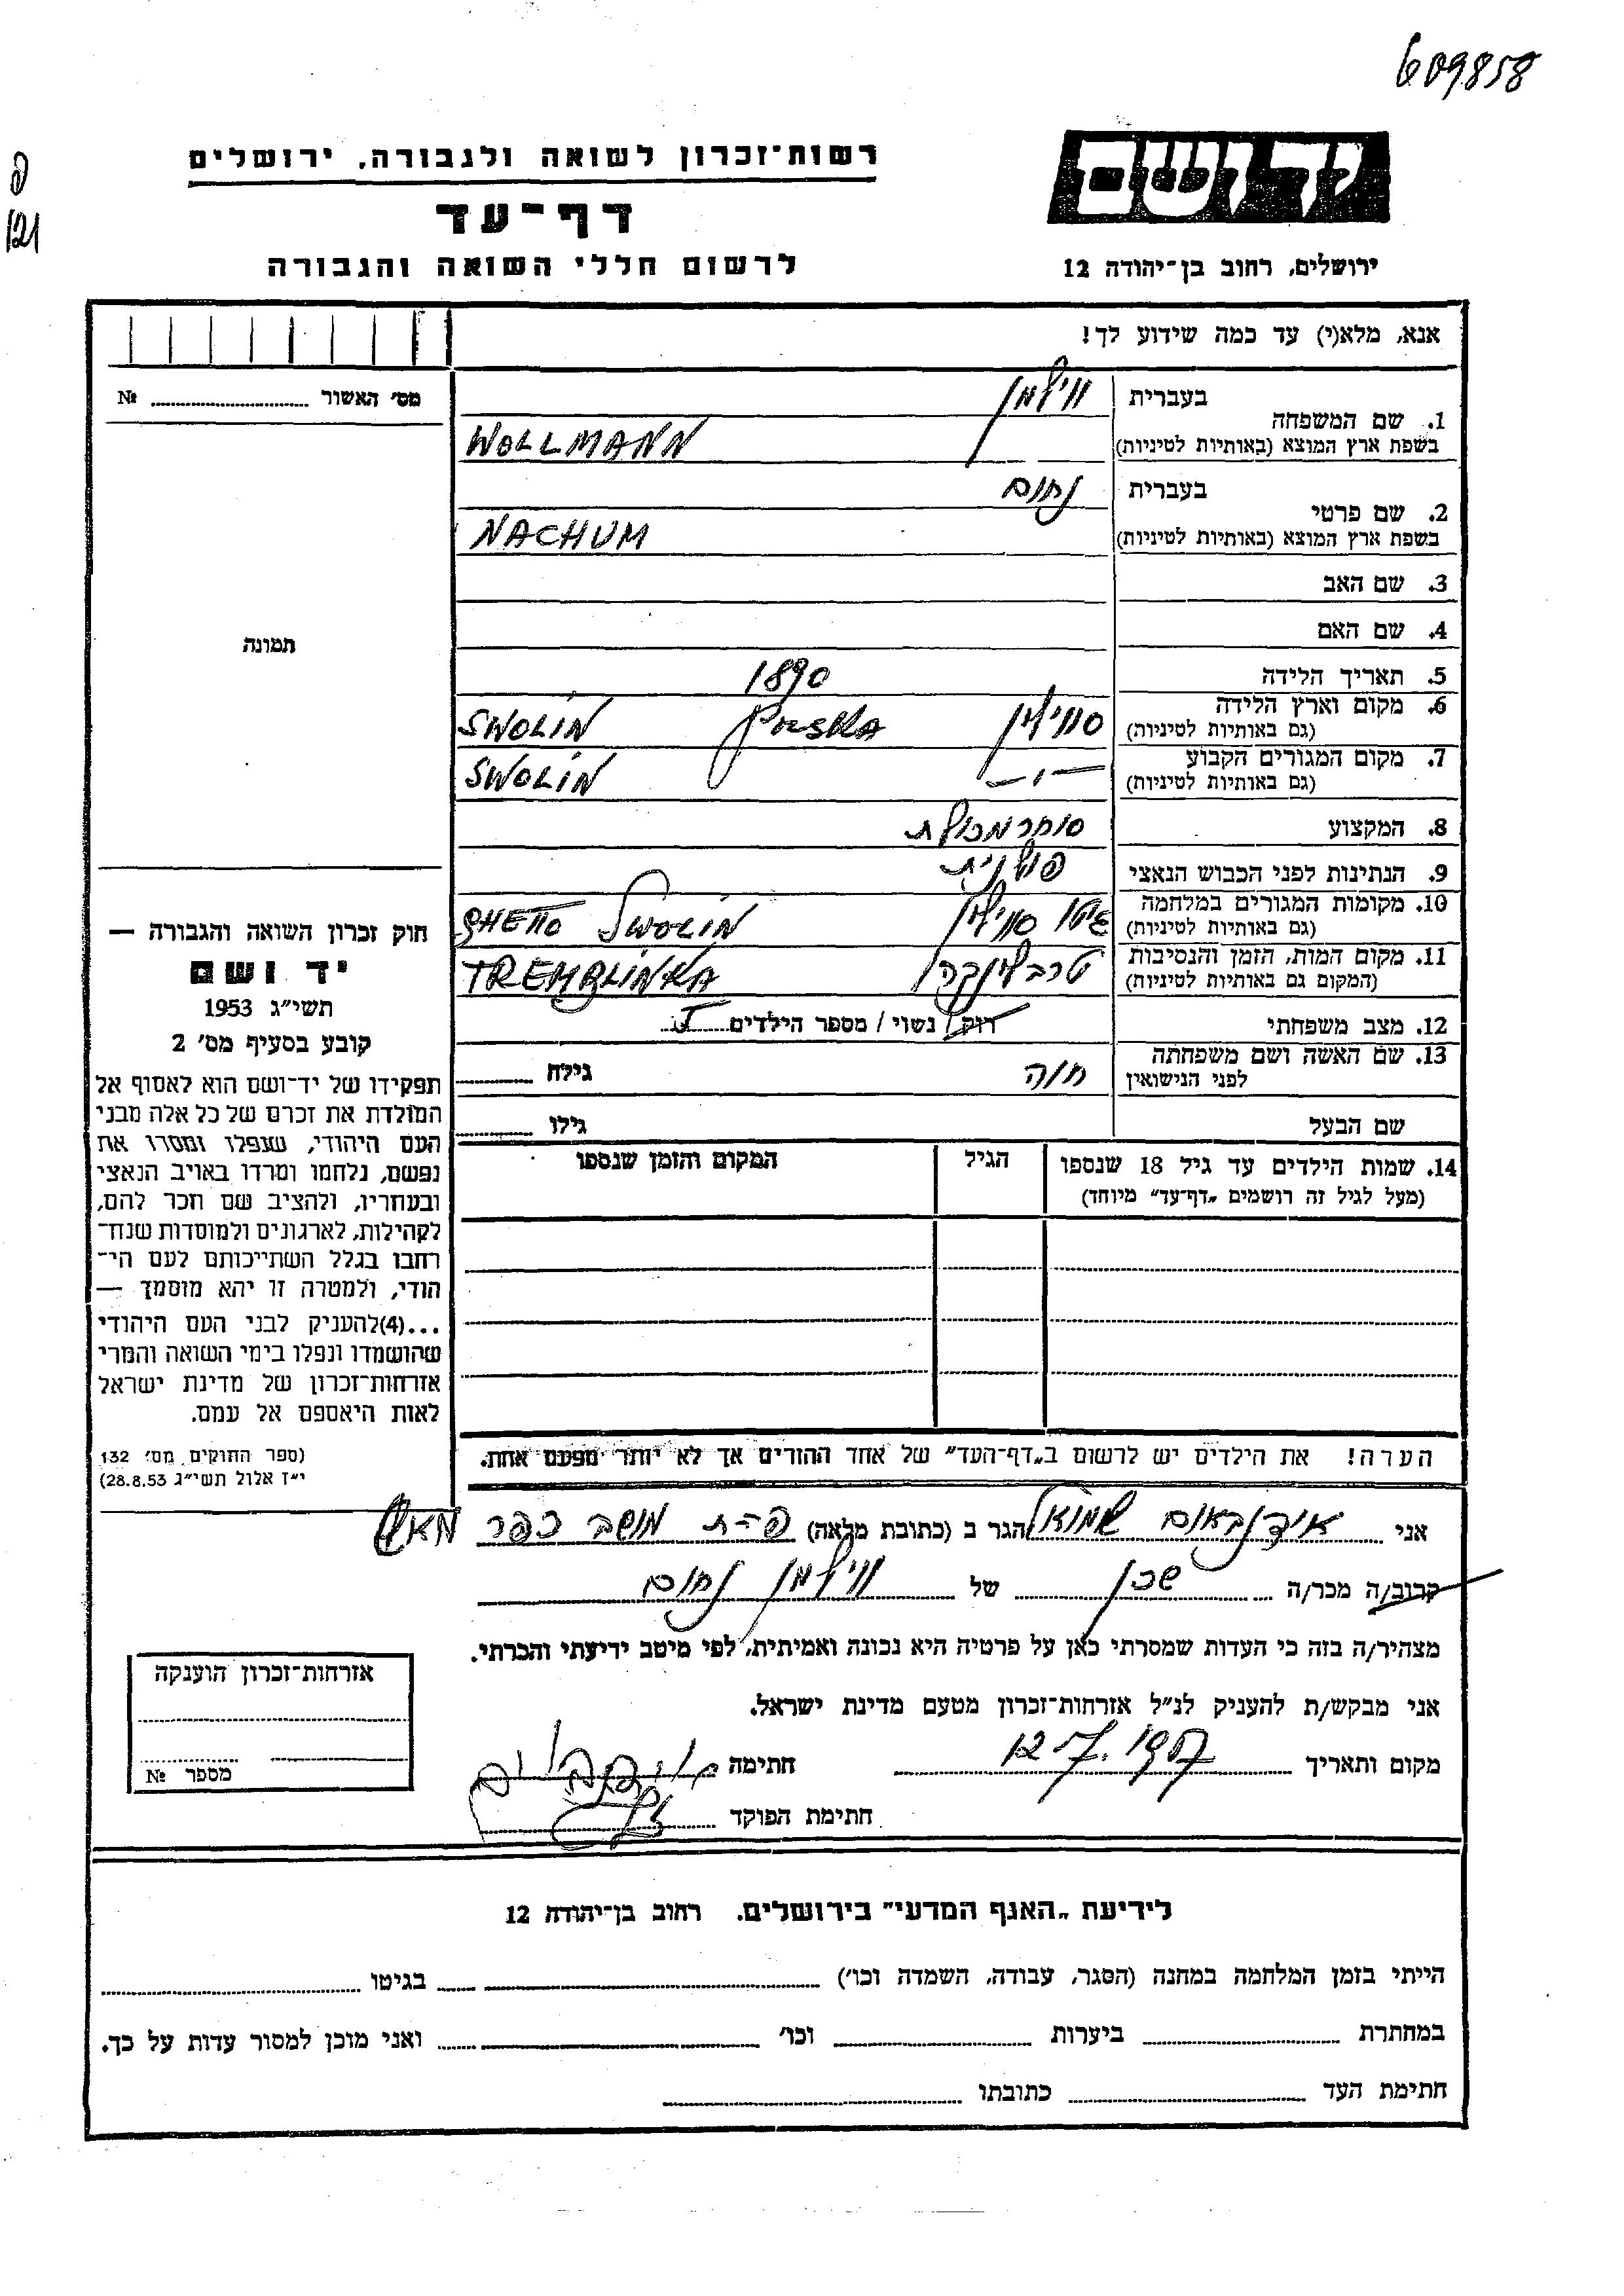 609858
פ
121
יד ושם
ירושלים, רחוב בן־יהודה 12
רשות־זכרון לשואה ולגבורה, ירושלים
דף־עד
לרשום חללי השואה והגבורה
אנא, מלא(י) עד כמה שידוע לך!
מס׳ האשור № ........
תמונה
1. שם המשפחה בעברית ווילמן
בשפת ארץ המוצא (באותיות לטיניות) WOLLMANN
2. שם פרטי בעברית נחום
בשפת ארץ המוצא (באותיות לטיניות) NACHUM
3. שם האב
4. שם האם
5. תאריך הלידה 1890
6. מקום וארץ הלידה סווילין Polska SWOLIN
(גם באותיות לטיניות)
7. מקום המגורים הקבוע —״— SWOLIN
(גם באותיות לטיניות)
8. המקצוע סוחר מכולת
9. הנתינות לפני הכבוש הנאצי פולנית
10. מקומות המגורים במלחמה גיטו סווילין GHETTO SWOLIN
(גם באותיות לטיניות)
11. מקום המות, הזמן והנסיבות טרבלינקה TREMBLINKA
(המקום גם באותיות לטיניות)
12. מצב משפחתי רווק / נשוי / מספר הילדים
13. שם האשה ושם משפחתה לפני הנישואין חוה גילה ........
שם הבעל גילו ........
14. שמות הילדים עד גיל 18 שנספו
(מעל לגיל זה רושמים „דף־עד״ מיוחד)
הגיל
המקום והזמן שנספו
חוק זכרון השואה והגבורה —
יד ושם
תשי״ג 1953
קובע בסעיף מס׳ 2
תפקידו של יד־ושם הוא לאסוף אל
המולדת את זכרם של כל אלה מבני
העם היהודי, שנפלו ומסרו את
נפשם, נלחמו ומרדו באויב הנאצי
ובעוזריו, ולהציב שם וזכר להם,
לקהילות, לארגונים ולמוסדות שנח־
רבו בגלל השתייכותם לעם הי־
הודי, ולמטרה זו יהא מוסמך —
...(4)להעניק לבני העם היהודי
שהושמדו ונפלו בימי השואה והמרי
אזרחות־זכרון של מדינת ישראל
לאות היאספם אל עמם.
(ספר החוקים מס׳ 132
י״ז אלול תשי״ג 28.8.53)
הערה! את הילדים יש לרשום ב„דף־העד״ של אחד ההורים אך לא יותר מפעם אחת.
אני אידנבאום שמואל הגר ב (כתובת מלאה) פ–ת מושב כפר מאש
קרוב/ה מכר/ה שכן של ווילמן נחום
מצהיר/ה בזה כי העדות שמסרתי כאן על פרטיה היא נכונה ואמיתית, לפי מיטב ידיעתי והכרתי.
אני מבקש/ת להעניק לנ״ל אזרחות־זכרון מטעם מדינת ישראל.
מקום ותאריך 12.7.1957 חתימה
חתימת הפוקד
אזרחות־זכרון הוענקה
מספר №
לידיעת „האגף המדעי״ בירושלים. רחוב בן־יהודה 12
הייתי בזמן המלחמה במחנה (הסגר, עבודה, השמדה וכו׳) ........ בגיטו ........
במחתרת ........ ביערות ........ וכו׳ ........ ואני מוכן למסור עדות על כך.
חתימת העד ........ כתובתו ........